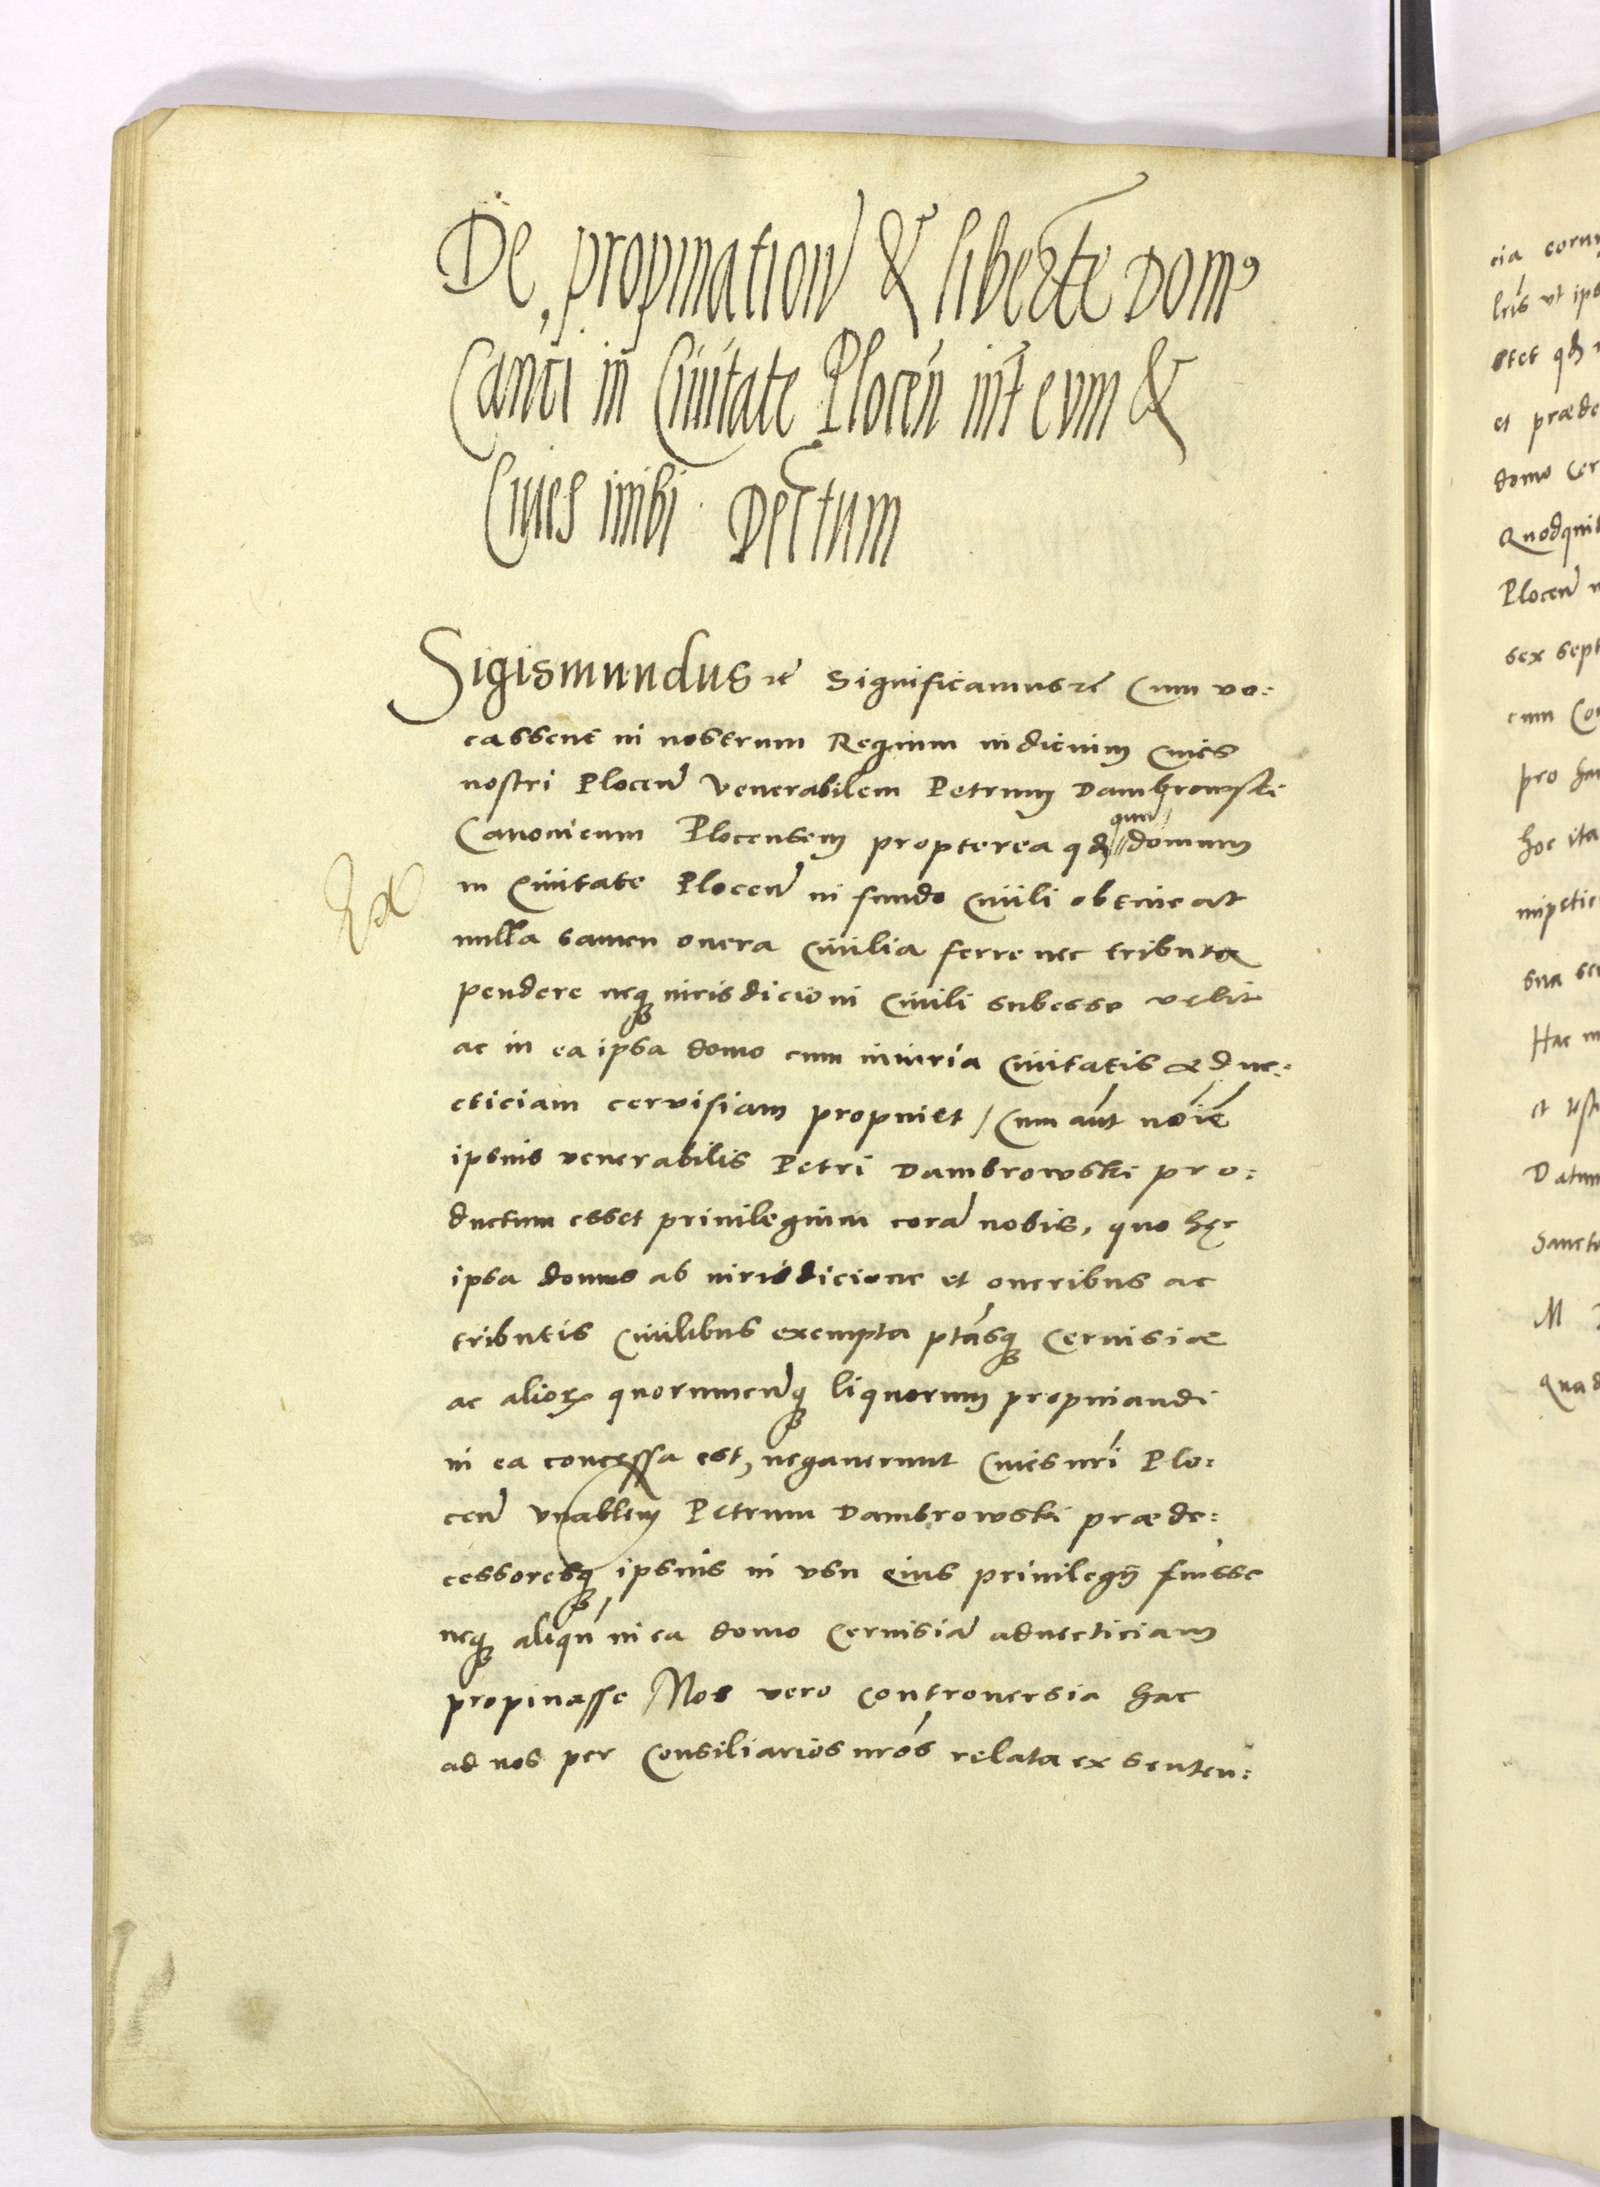 De propination̄ & libertẽ Domꝰ
Canci in Ciuitate Plocen̄ int̄ eum &
Ciues inibi Dectum
Sigismundus ꝛc̄ Significamus ꝛc̄ Cum vo:
cassent in nostrum Regium iudicium Ciues
nostri Plocen̄ Venerabilem Petrum Dambrowski
Canonicum Plocensem propterea qd̄ qum domum
in Ciuitate Plocen̄ in fundo Ciuili obtineat
nulla tamen onera Ciuilia ferre nec tributa
pendere neqꝫ iurisdicioni Ciuili subesse velit
ac in ea ipsa domo cum iniuria Ciuitatis aduec:
cticiam cervisiam propinet / Cum aūt noīe
ipsius venerabilis Petri Dambrowski pro:
ductum esset priuilegium corā nobis, quo hęc
ipsa domus ab iurisdicione et oneribus ac
tributis Ciuilibus exempta ptāsqꝫ Ceruisiæ
ac alioꝝ quorumcunqꝫ liquorum propinandi
in ea concessa est, negauerunt Ciues nr̄i Plo:
cen̄ Vnablem Petrum Dambrowski præde:
cessoresqꝫ ipsius in vsu eius priuilegij fuisse
neqꝫ aliqn̄ in ea domo Ceruisiā aduecticiam
propinasse Nos vero Controuersia hac
ad nos per Consiliarios nr̄os relata ex senten:
Ex
cia eorum
lr̄is vt ips
et præde
domo Cer
Plocen̄
sex sept
cum Co
pro
hoc ita
sua
Hac
Datum
Sancto
M
Quad